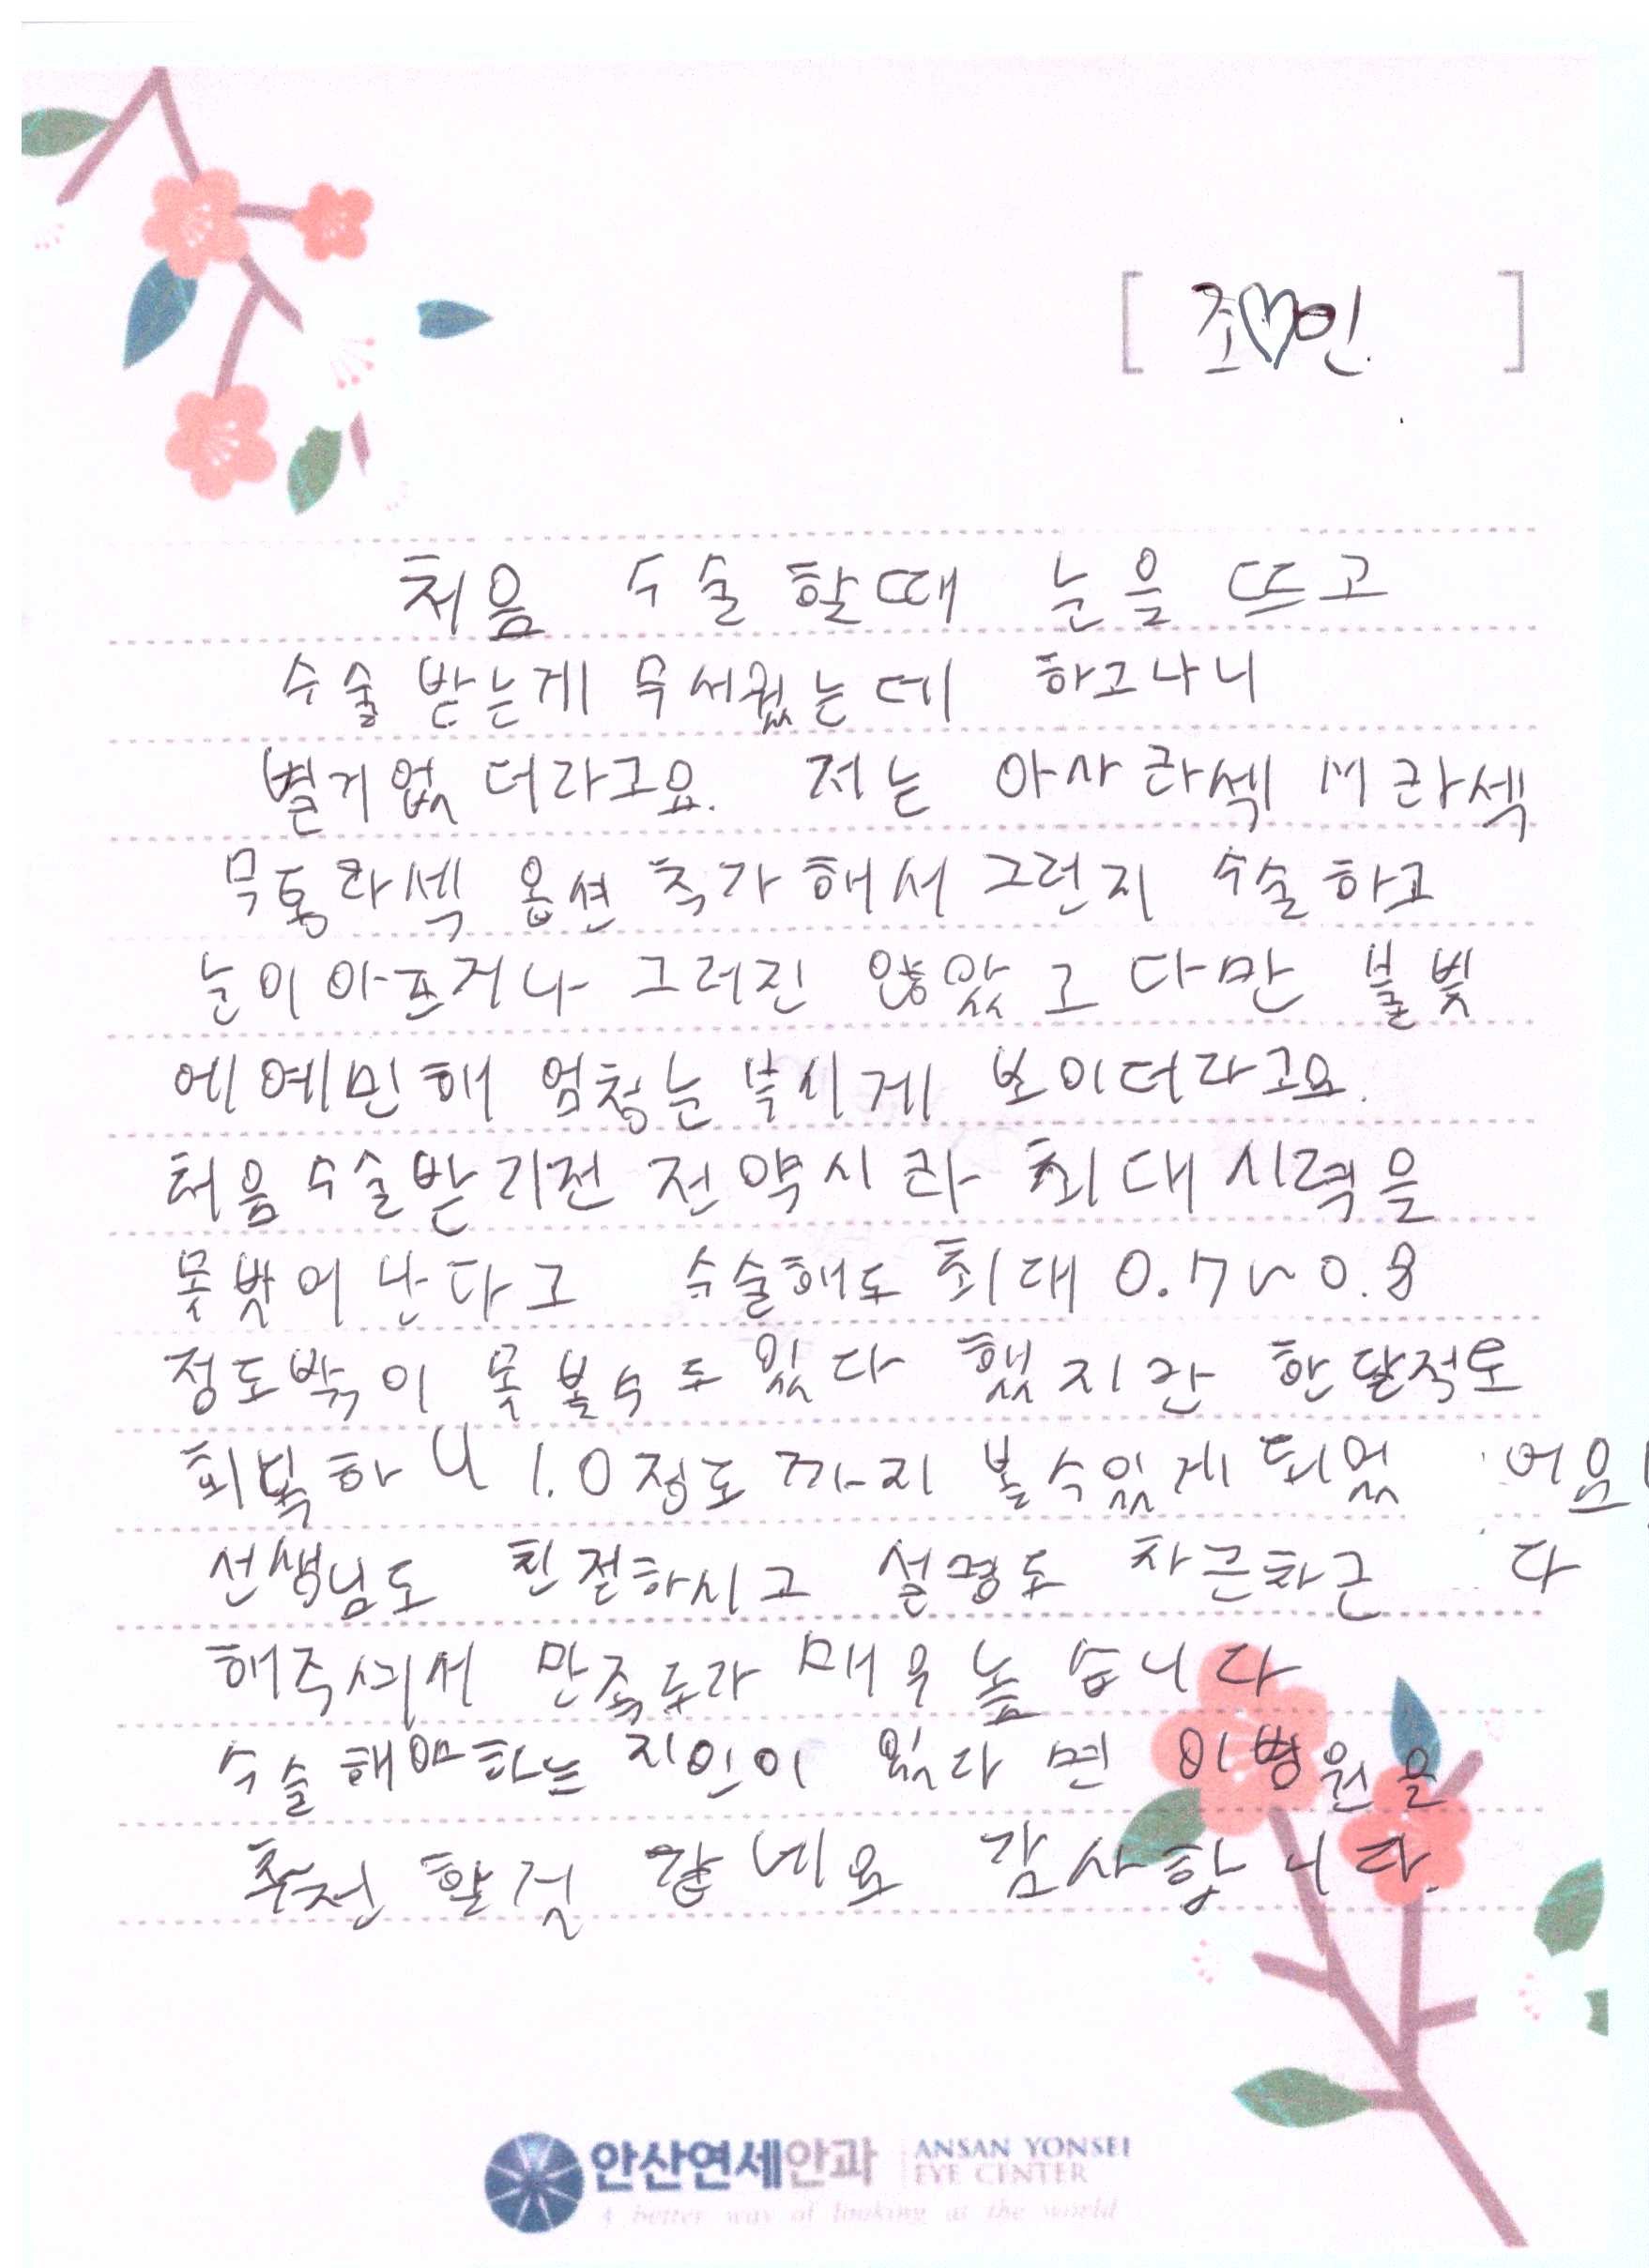 [ 조♡인 ]
처음 수술 할때 눈을 뜨고
수술 받는게 무서웠는데 하고나니
별거없더라고요. 저는 아사라섹 M라섹
무통라섹 옵션 추가해서 그런지 수술하고
눈이아프거나 그러진 않았고 다만 불빛
에예민해 엄청눈부시게 보이더라고요.
처음수술받기전 전약시라 최대시력을
못벗어난다고 수술해도 최대 0.7~0.8
정도밖이 못볼수도있다 했지만 한달적도
회복하니 1.0정도까지 볼수있게되었어요!
선생님도 친절하시고 설명도 차근차근 다
해주셔서 만족도가 매우높습니다
수술해야하는 지인이 있다면 이병원을
추천 할것 같네요 감사합니다.
안산연세안과 ANSAN YONSEI
EYE CENTER
A better way of looking at the world